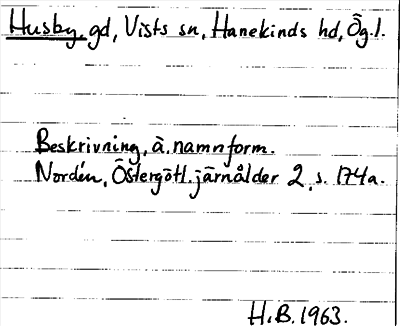 Husby, gd, Vists sn, Hanekinds hd, Ög.l.
Beskrivning, ä. namnform.
Nordén, Östergötl. järnålder 2, s. 174a.
H.B. 1963.